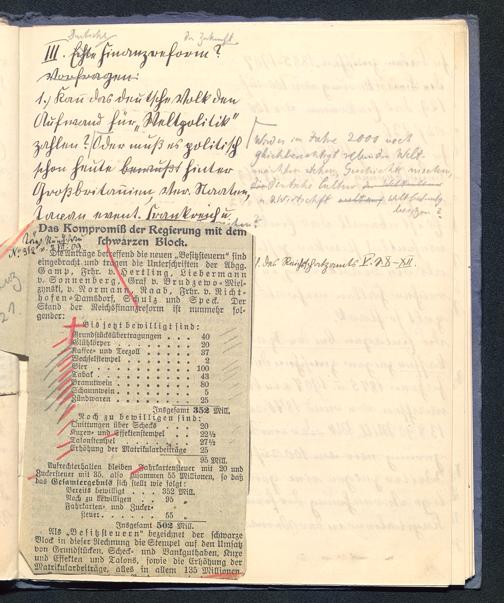 Deutsche der Zukunft
III. Echte Finanzreform?
Vorfragen:
1.) Kan das deutsche Volk den
Aufwand für „Weltpolitik"
zahlen? Oder muß es politisch
schon heute bewußt hinter
Großbritannien, Ver. Staaten,
Japan event. Frankreich u.
Das Kompromiß der Regierung mit dem
schwarzen Block.
Die Anträge betreffend die neuen „Besitzsteuern" sind
eingebracht und tragen die Unterschriften der Abgg.
Gamp, Frhr. v. Hertling, Liebermann
v. Sonnenberg, Graf v. Brudzewo-Miel-
zynski, v. Normann, Raab, Frhr. v. Richt-
hofen-Damsdorf, Schulz und Speck. Der
Stand der Reichsfinanzreform ist nunmehr fol-
gender:
Bis jetzt bewilligt sind:
Grundstücksübertragungen . . . . 40
Glühkörper . . . . . 20
Kaffee- und Teezoll . . . . 37
Wechselstempel . . . . . 2
Bier . . . . . 100
Tabak . . . . . 43
Branntwein . . . . . 80
Schaumwein . . . . . 5
Zündwaren . . . . . 25
Insgesamt 352 Mill.
Noch zu bewilligen sind:
Quittungen über Schecks . . . . 20
Kuxen- und Effektenstempel . . . 22½
Talonstempel . . . . . 27½
Erhöhung der Matrikularbeiträge . . 25
95 Mill.
Aufrechterhalten bleiben Fahrkartensteuer mit 20 und
Zuckersteuer mit 35, also zusammen 55 Millionen, so daß
das Gesamtergebnis sich stellt wie folgt:
Bereits bewilligt . . . 352 Mill.
Noch zu bewilligen . . 95 "
Fahrkarten- und Zucker-
steuer . . . . 55 "
Insgesamt 502 Mill.
Als „Besitzsteuern" bezeichnet der schwarze
Block in dieser Rechnung die Stempel auf den Umsatz
von Grundstücken, Scheck- und Bankguthaben, Kuxe
und Effekten und Talons, sowie die Erhöhung der
Matrikularbeiträge, alles in allem 135 Millionen
im Jahre 2000 noch
gleichberechtigt neben den Welt-
deutsche Cultur
u. Wirtschaft
1. des Reichsschatzamts